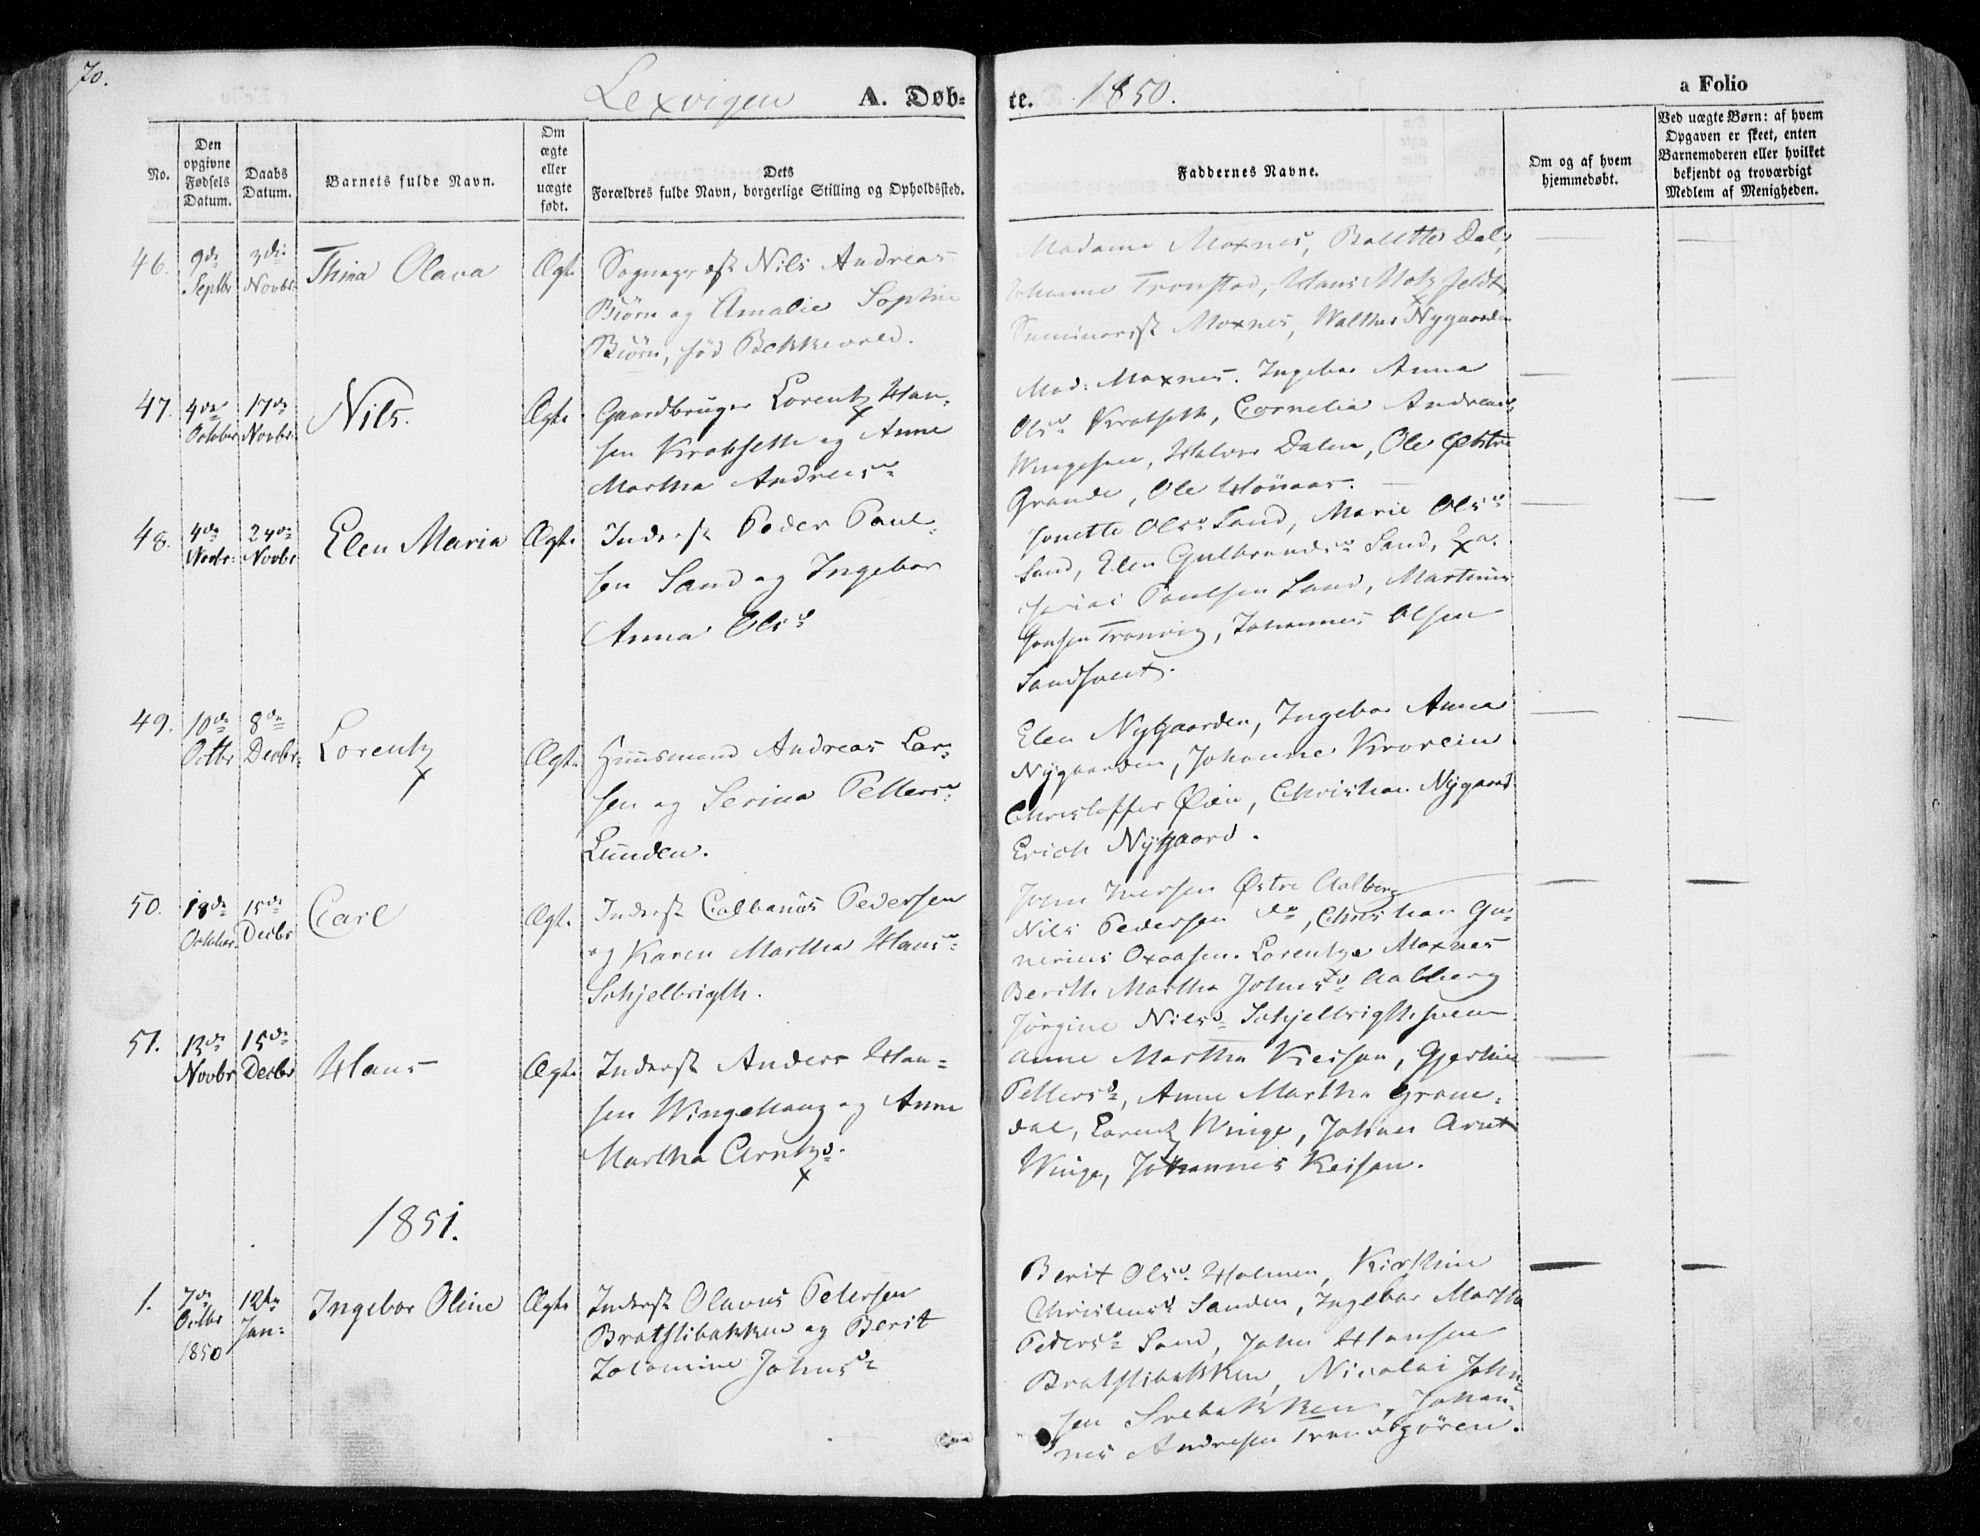 70.
Lexvigen A. Døb=
te. 1850.
a Folio
No.
Den
opgivne
Fødsels
Datum.
Daabs
Datum.
Barnets fulde Navn.
Om
ægte
eller
uægte
født.
Dets
Forældres fulde Navn, borgerlige Stilling og Opholdssted.
Faddernes Navne.
Om og af hvem
hjemmedøbt.
Ved uægte Børn: af hvem
Opgaven er skeet, enten
Barnemoderen eller hvilket
bekjendt og troværdigt
Medlem af Menigheden.
46.
9de
Septbr
3die
Novbr
Thina Olava
Ægte
Sognepræst Nils Andreas
Biørn og Amalie Sophie
Biørn, fød Bekkevold.
Madame Moxnes, Dal,
Johanna Tronstad, Hans Motzfeldt,
Seminarist Moxnes, Walther Nygaarden
47.
4de
October
17de
Novbr
Nils.
Ægte
Gaardbruger Lorentz Han-
sen Kratseth og Anne
Martha Andreasd.
Mad: Moxnes. Ingebor Anna
Olsd. Kratseth, Cornelia Andreasd.
Halvor Dalen, Ole Østre
Grande, Ole
48.
4de
Novbr:
24de
Novbr
Elen Maria
Ægte
Inderst Peder Paul-
sen Sand og Ingebor
Anna Olsd.
Jonette Olsd. Sand, Marie Olsd.
Sand, Elen Gulbrandsd. Sand, Za-
charias Paulsen Sand, Martinus
Tranvig, Johannes Olsen
49.
10de
Octbr
8de
Decbr:
Lorentz
Ægte
Huusmand Andreas Lar-
sen og Serina Petersd.
Lunden.
Elen Nygaarden, Ingebor Anna
Nygaarden, Johanne
Christoffer Øien, Christian Nygaard
Erich Nygaard.
50.
18de
October
15de
Decbr
Carl
Ægt.
Inderst Calbanus Pedersen
og Karen Martha Hansd.
Schjelbrigth.
John Iversen Østre Aalberg
Nils Pedersen do, Christian Gu-
nerius Oxaasen. Lorentze Moxnes
Berith Martha Johnsd. Aalberg
Jørgine Nilsd. Schjelbrigth
51.
13de
Novbr
15de
Decbr
Hans
Ægte
Inderst Anders Han-
sen Wingehaug og Anne
Martha Arntzd.
Anne Martha Gjertine
Petersd., Anne Martha Grøn-
dal, Lorentz Winge, Johan Arnt
Winge, Johannes
1851.
1.
7de
Octbr
1850
12te
Jan:
Ingebor Oline
Ægte
Inderst Olavus Petersen
Bratslibakken og Berit
Johnsd.
Berit Olsd. Holmen, Kirstine
Christensd. Sanden, Ingebor Martha
Pedersd. Sand, John Hansen
Bratslibakken, Nicolai John-
sen Svebakken, Johan-
nes Andresen